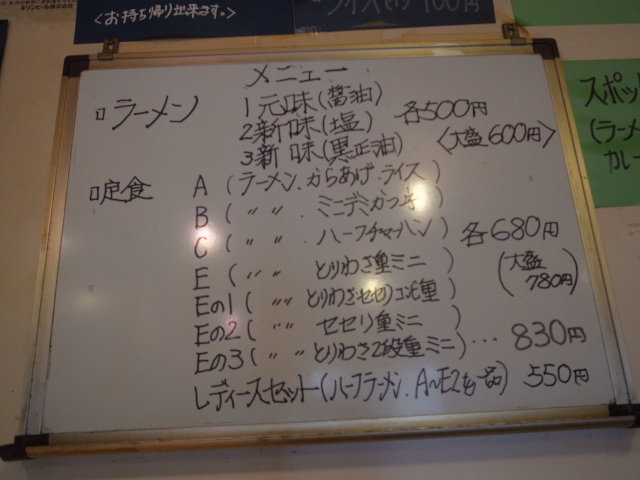 キリンビール株式会社
<お持ち帰り出来ます。>
ライスセット100円
メニュー
ラーメン
1元味(醤油)
2新味(塩) 各500円
3新味(黒正油) <大盛600円>
定食
A(ラーメン.からあげ.ライス)
B(〃〃.ミニデミかつ丼)
C(〃〃.ハーフチャーハン) 各680円
E(〃〃 とりわさ重ミニ) (大盛780円)
Eの1(〃〃とりわさセセリコンビ重)
Eの2(〃〃 セセリ重ミニ)
Eの3(〃〃とりわさ2段重ミニ)…830円
レディースセット(ハーフラーメン.A〜E2を一品) 550円
スポッ
(ラーメ
カレー